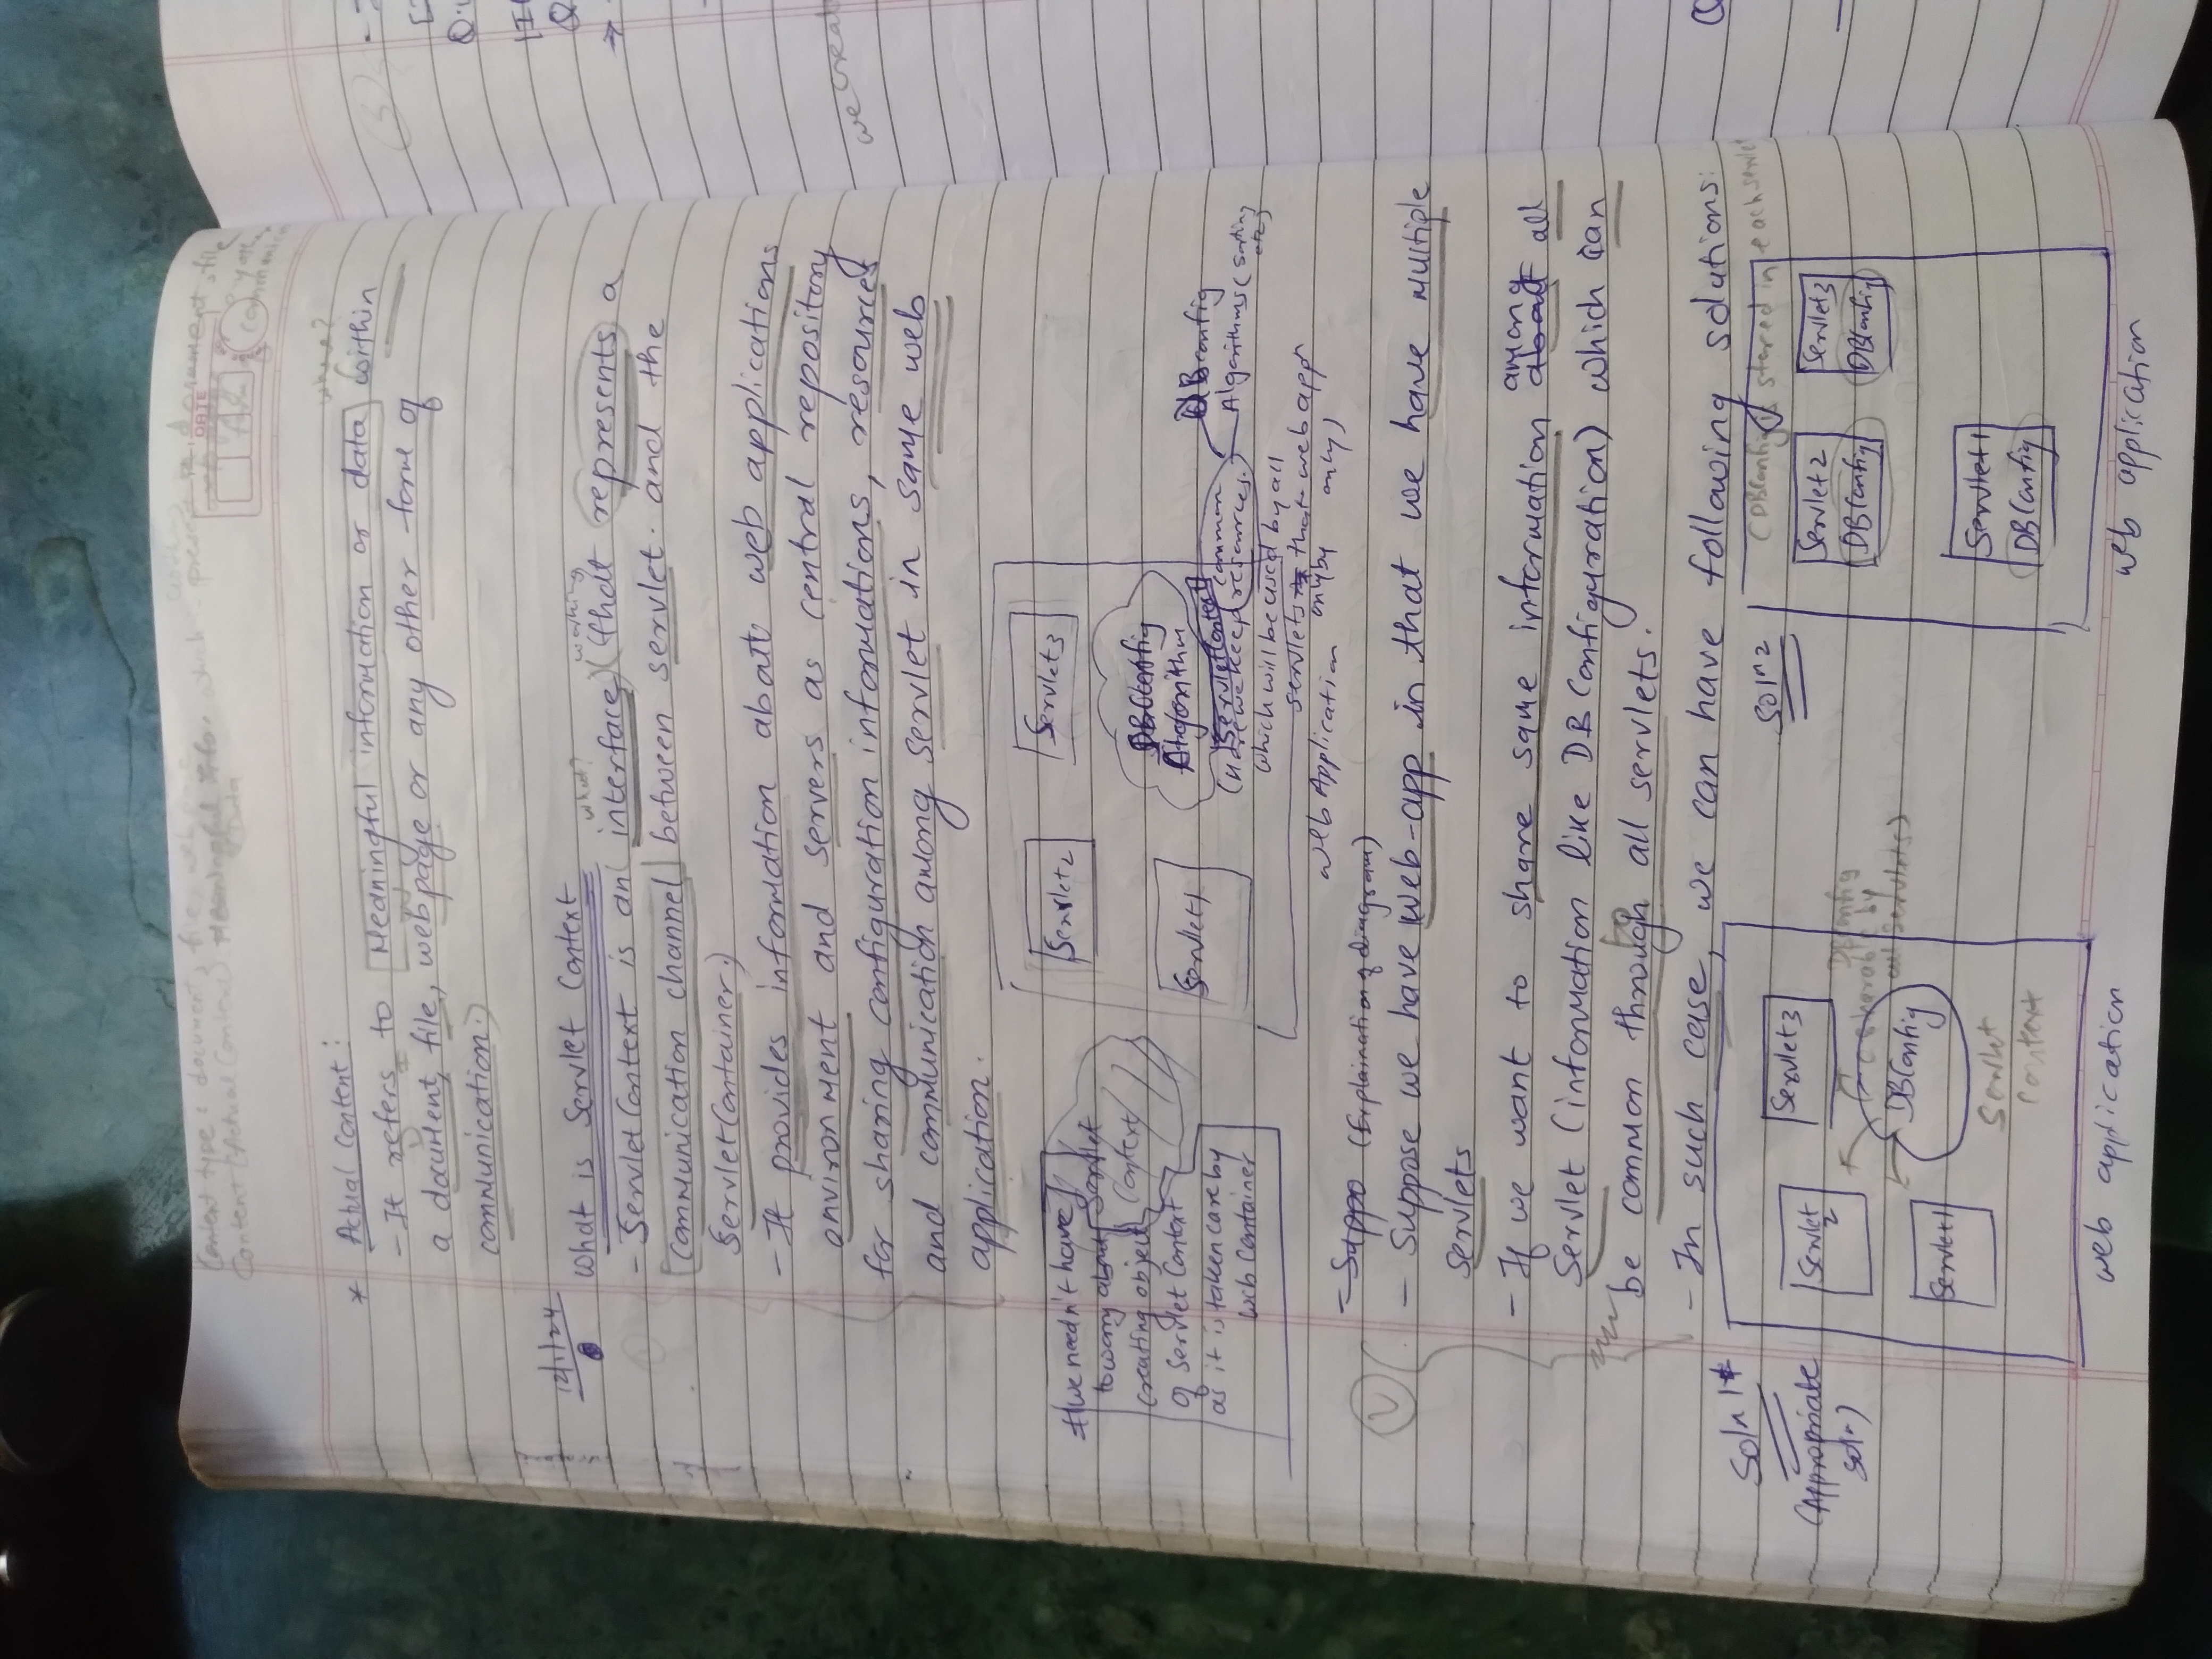 Content type: document, file, web page
Content (Actual Content) Meaningful Info. which present in document, file
Data
form
any other
communica
DATE
* Actual Content:
where?
- It refers to Meaningful information or data within
a document, file, webpage or any other form of
communication.)
12/1/24
What is Servlet Context
what? working
- ServletContext is an interface) (that represents a
communication channel between servlet. and the
ServletContainer.)
- It provides information about web applications
environment and servers as central repository
for sharing configuration informations, resources
and communication among servlet in same web
application.
# we needn't have
to worry about
creating object
of Servlet Context
as it is taken care by
Web Container
Servlet
Context
Servlet2
Servlet3
Servlet1
DBConfig
Algorithm
ServletContext
(Here we keep common
resources.
which will be used by all
servlets that web appn
only by only)
DBconfig
Algorithms (sorting
etc)
web Application
- Suppo (Explaination of diagram)
2
- Suppose we have web-app in that we have multiple
servlets
- If we want to share same information among about all
Servlet (information like DB Configuration) which can
be common through to all servlets.
- In such case, we can have following solutions:
Soln 1
(Appropriate
soln)
Servlet
2
Servlet3
Servlet1
DBConfig
DBConfig
(Sharable by
all servlets)
Servlet
Context
web application
Soln 2
(DBConfig is stored in each servlet
Servlet2
DBConfig
Servlet3
DBConfig
Servlet1
DBConfig
web application
3
we creat